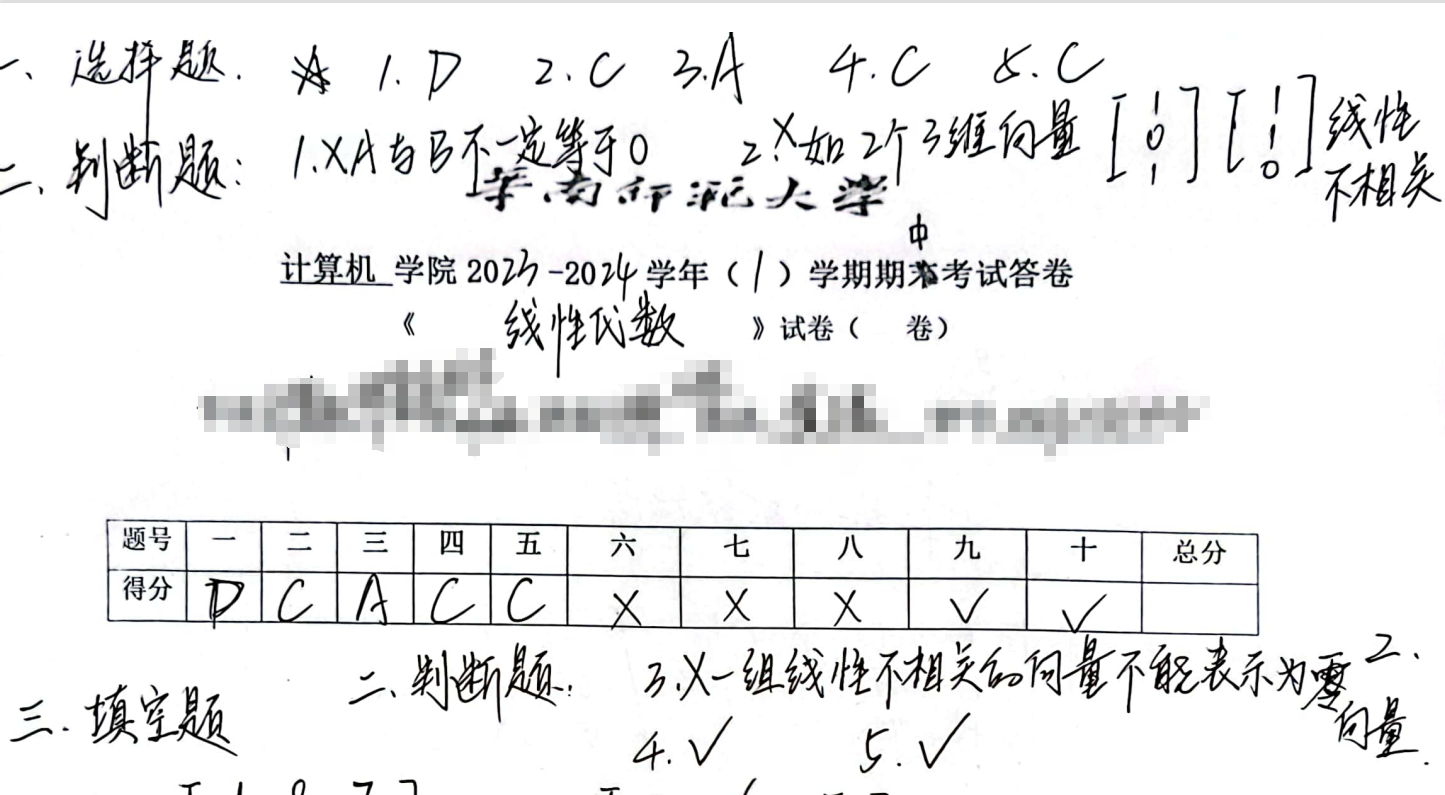 一、选择题: 1. D 2. C 3. A 4. C 5. C
二、判断题: 1. X A与B不一定等于0 2. X 如2个3维向量 [1 0 1] [1 1 0] 线性不相关
华南师范大学
计算机 学院 2023-2024 学年(1)学期期中考试答卷
《 线性代数 》试卷( 卷)
题号 一 二 三 四 五 六 七 八 九 十 总分
得分 D C A C C X X X √ √
二、判断题: 3. X 一组线性不相关的向量不能表示为零向量.
4. √ 5. √
三. 填空题
2.